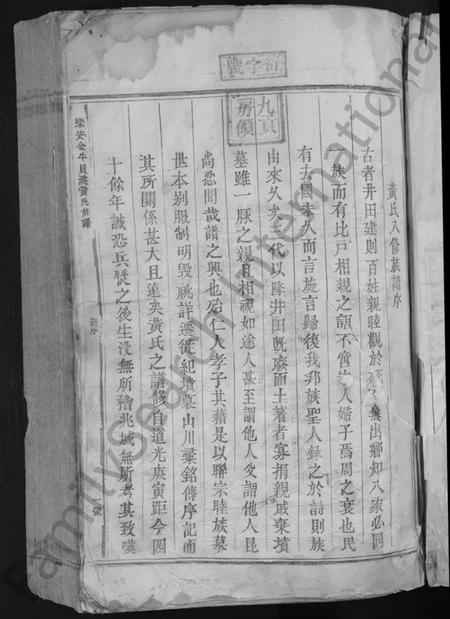 黃氏八修族譜序
古者井田建則百姓親睦觀於死徙無出鄉知八家必同
一族而有比戶相親之頌不啻家人婦子焉周之衰也民
有去國未久而言旋言歸復我邦族聖人錄之於詩則族
由來久矣三代以降井田既廢而土著者寡捐親戚棄墳
墓雖一脉之親且相視如途人甚至謂他人父謂他人昆
尚忍聞哉譜之興也殆仁人孝子其藉是以聯宗睦族慕
世本別服制明毀祧詳遷徙紀墳墓山川彙銘傳序記而
其所關係甚大且遠矣黃氏之譜修自道光庚寅距今四
十餘年誠恐兵燹之後生沒無所稽兆域無所考其致嘆
樂安金牛員溪黃氏族譜
新序
字號
九貢
房領
FamilySearch International